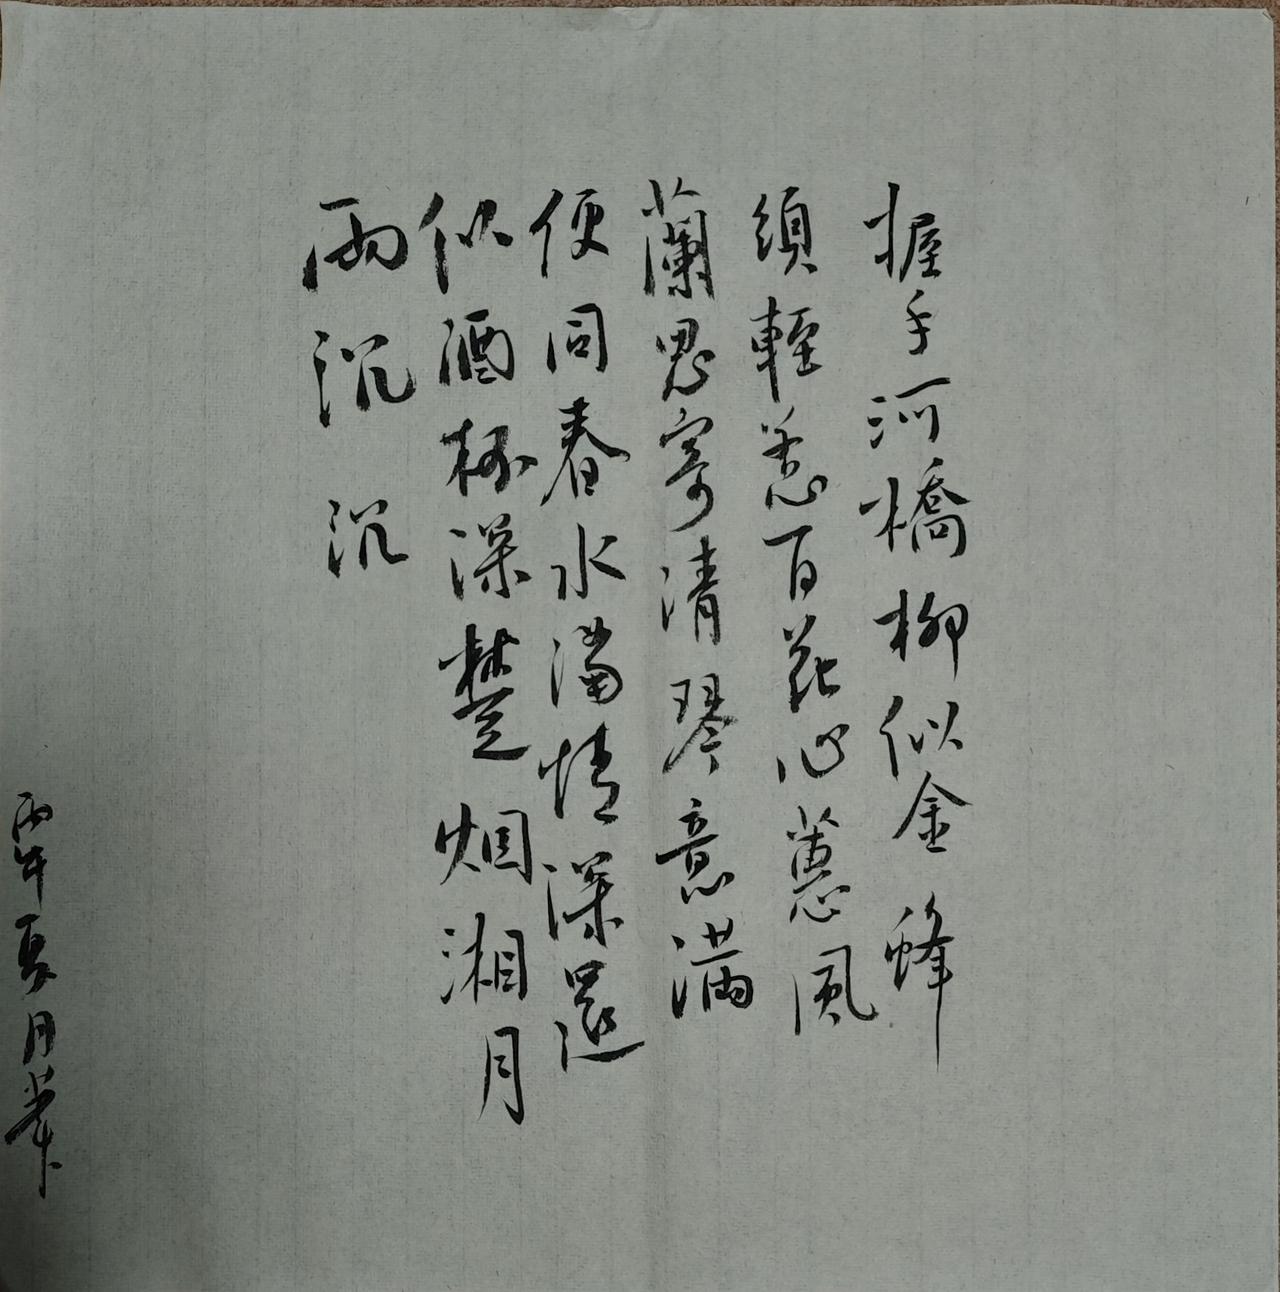 握手河橋柳似金蜂
須輕惹百花心蕙風
蘭思寄清琴意滿
便同春水滿情深還
似酒杯深楚烟湘月
兩沉沉
丙午夏月苹